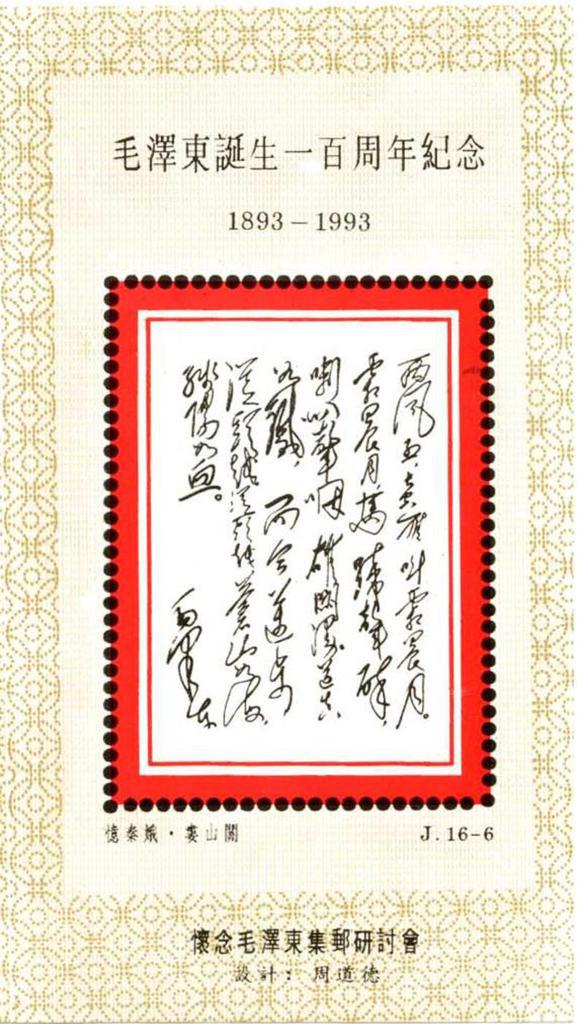 毛澤東誕生一百周年紀念
1893－1993
西风烈,長空雁叫霜晨月。
霜晨月,馬蹄聲碎,
喇叭聲咽 雄關漫道真
如鐵,而今邁步
從頭越 從頭越 蒼山如海,
殘陽如血。
毛澤東
憶秦娥·婁山關
J.16-6
懷念毛澤東集郵研討會
設計：周道德